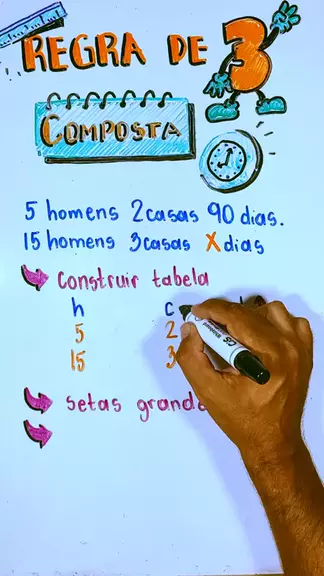 REGRA DE 3
COMPOSTA
5 homens 2 casas 90 dias.
15 homens 3 casas X dias
Construir tabela
h c
5 2
15 3
setas